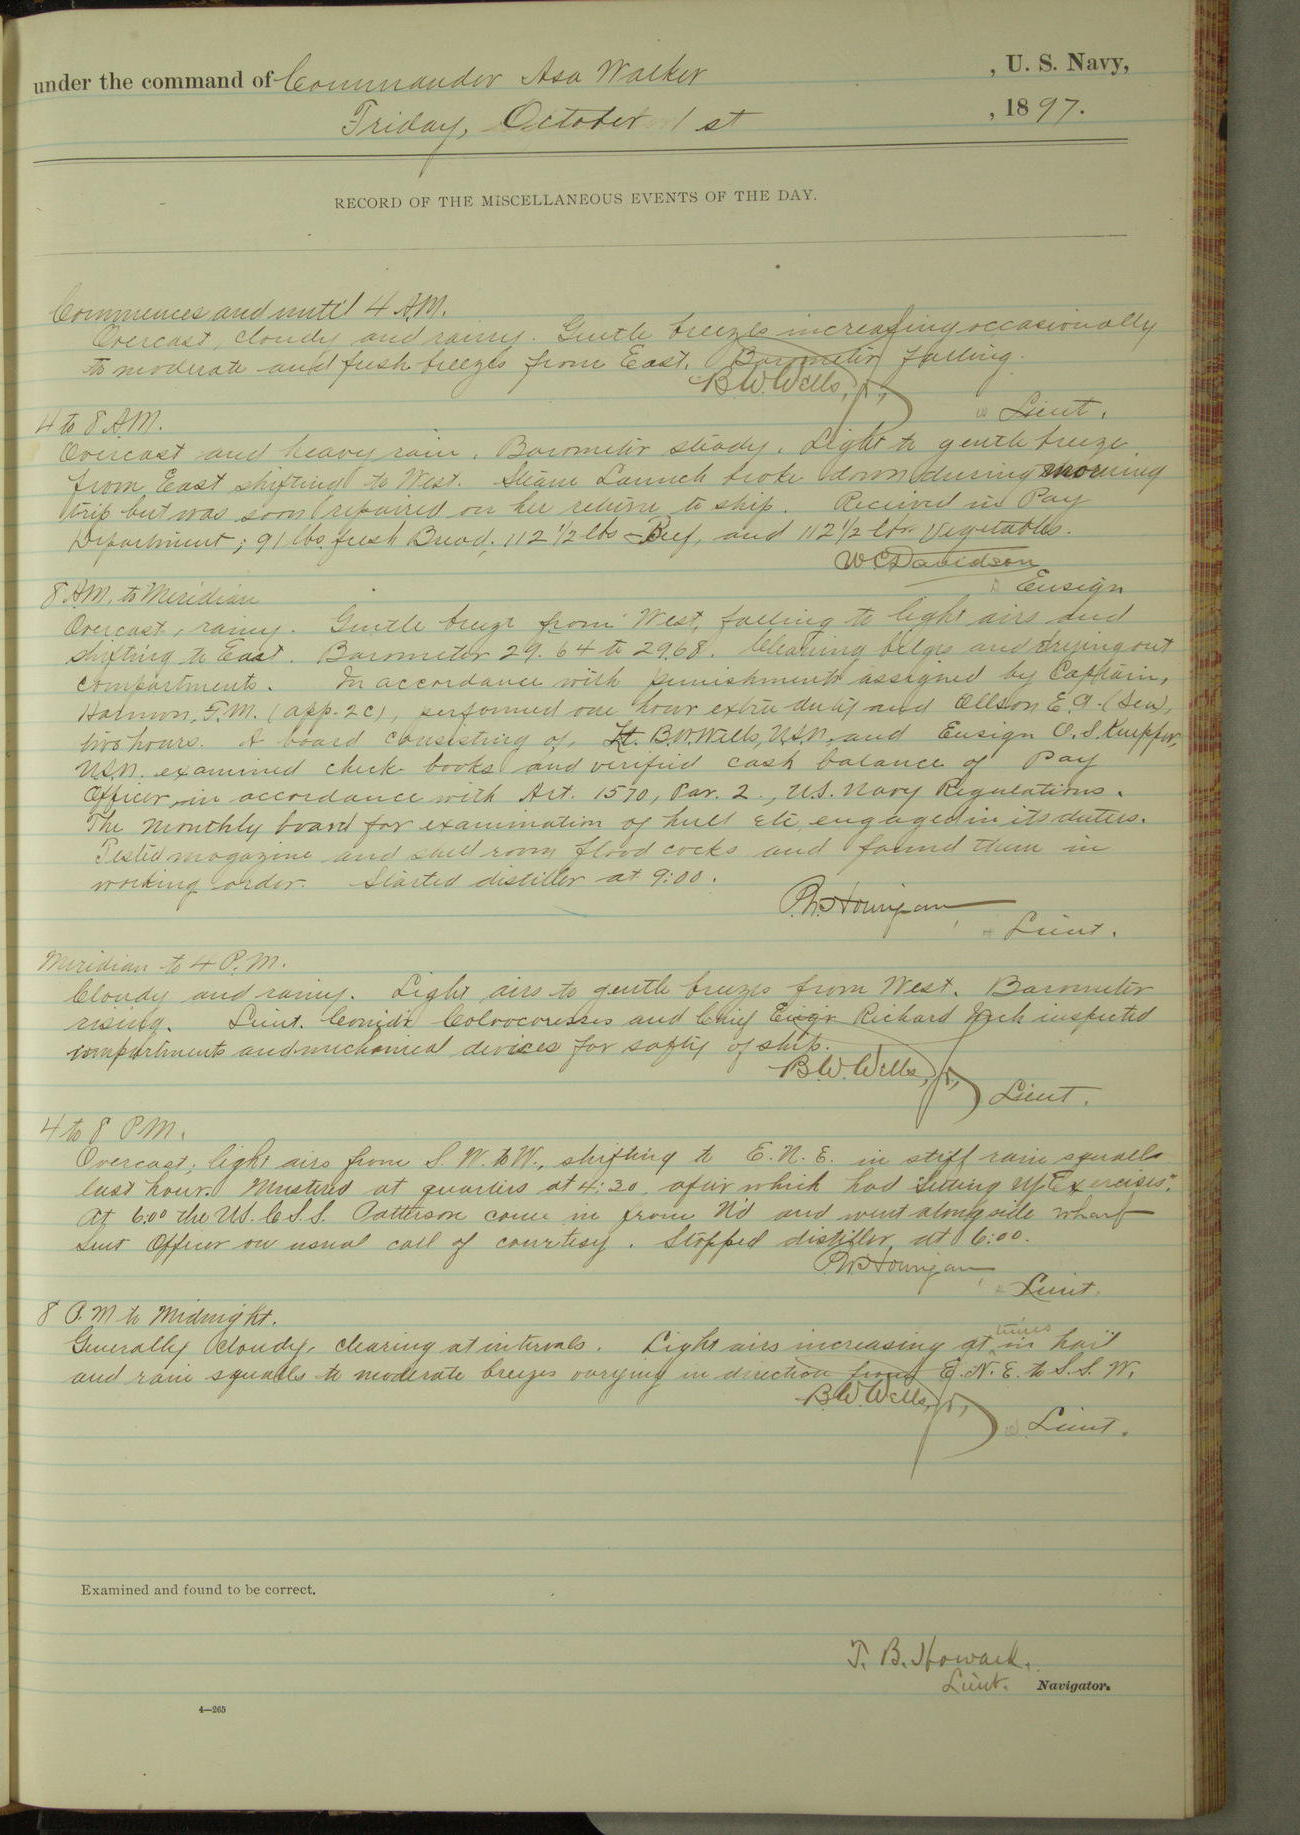 under the command of Commander Asa Walker , U. S. Navy,
Friday, October 1st , 1897.
RECORD OF THE MISCELLANEOUS EVENTS OF THE DAY.
Commences and until 4 A.M.
Overcast, cloudy and rainy. Gentle breezes increasing occasionally
to moderate and fresh breezes from East. Barometer falling.
B.W. Wells, Jr.,
Lieut.
4 to 8 A.M.
Overcast and heavy rain. Barometer steady. Light to gentle breeze
from East shifting to West. Steam Launch broke down during morning
trip but was soon repaired on her return to ship. Received in Pay
Department; 91 lbs fresh Bread, 112 1/2 lbs Beef, and 112 1/2 lbs Vegetables.
W.C. Davidson
Ensign
8 A.M. to Meridian
Overcast, rainy. Gentle breeze from West, falling to light airs and
shifting to East. Barometer 29.64 to 29.68. Cleaning bilges and drying out
compartments. In accordance with punishments assigned by Captain,
Harmon, F.M. (app. 2c), performed one hour extra duty and Ollson E.A. (Sea),
two hours. A board consisting of, Lt. B.W. Wells, U.S.N. and Ensign O.S. Knepper,
U.S.N. examined check books and verified cash balance of Pay
Officer, in accordance with Art. 1570, Par. 2., U.S. Navy Regulations.
The Monthly board for examination of hull etc engaged in its duties.
Tested magazine and shell room flood cocks and found them in
working order. Started distiller at 9:00.
P.W. Hourigan,
Lieut.
Meridian to 4 P.M.
Cloudy and rainy. Light airs to gentle breezes from West. Barometer
rising. Lieut. Comdr Colvocoresses and Chief Engr Richard Inch inspected
compartments and mechanical devices for safty of ship.
B.W. Wells, Jr.,
Lieut.
4 to 8 P.M.
Overcast; light airs from S.W. to W., shifting to E.N.E. in stiff rain squalls
last hour. Mustered at quarters at 4:30, after which had "Setting Up Exercises".
At 6.00 the U.S.C.S.S. Patterson came in from N'd and went alongside wharf
Sent Officer on usual call of courtesy. Stopped distiller, at 6:00.
P.W. Hourigan,
Lieut.
8 P.M to Midnight.
Generally cloudy, clearing at intervals. Light airs increasing at times in hail
and rain squalls to moderate breezes varying in direction from E.N.E. to S.S.W.
B.W. Wells, Jr.,
Lieut.
Examined and found to be correct.
T. B. Howard.
Lieut. Navigator.
4—265